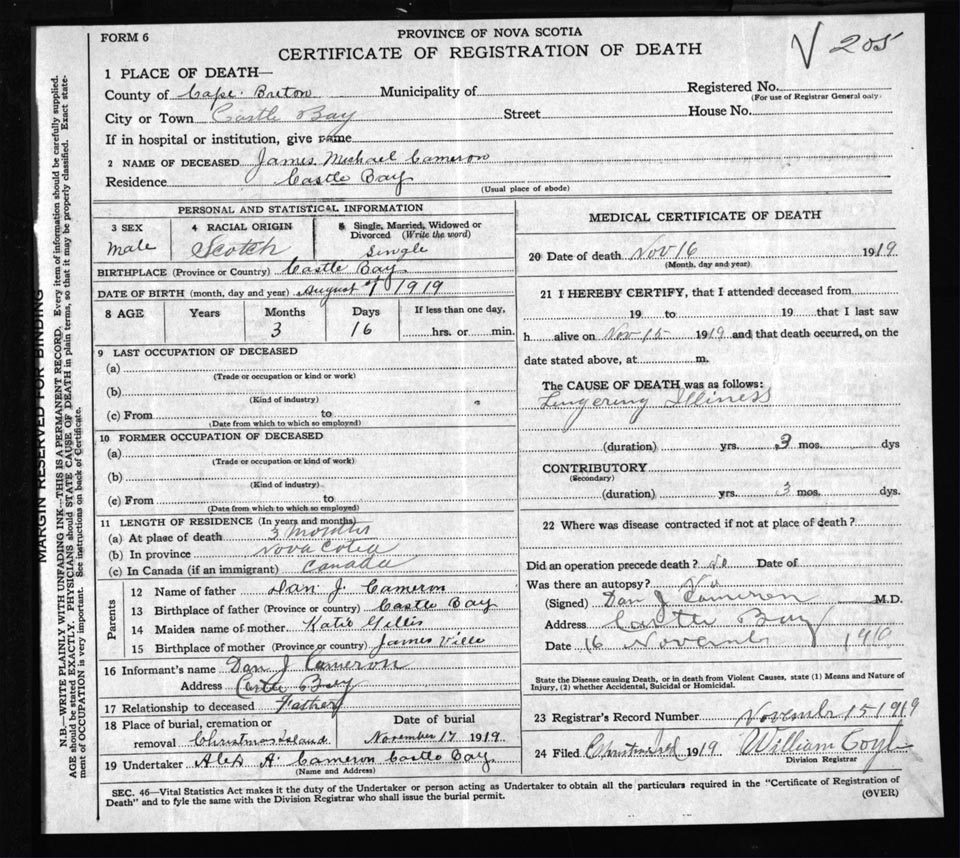 FORM 6
PROVINCE OF NOVA SCOTIA
CERTIFICATE OF REGISTRATION OF DEATH
V 205
1 PLACE OF DEATH—
County of Cape Breton Municipality of Registered No.
(For use of Registrar General only)
City or Town Castle Bay Street House No.
If in hospital or institution, give name
2 NAME OF DECEASED James Michael Cameron
Residence Castle Bay
(Usual place of abode)
PERSONAL AND STATISTICAL INFORMATION
3 SEX 4 RACIAL ORIGIN 5 Single, Married, Widowed or
Divorced (Write the word)
male Scotch Single
BIRTHPLACE (Province or Country) Castle Bay
DATE OF BIRTH (month, day and year) August 1919
8 AGE Years Months Days If less than one day,
3 16 hrs. or min.
9 LAST OCCUPATION OF DECEASED
(a)
(Trade or occupation or kind or work)
(b)
(Kind of industry)
(c) From to
(Date from which to which so employed)
10 FORMER OCCUPATION OF DECEASED
(a)
(Trade or occupation or kind of work)
(b)
(Kind of industry)
(c) From to
(Date from which to which so employed)
11 LENGTH OF RESIDENCE (In years and months)
(a) At place of death 3 Months
(b) In province Nova Cotea
(c) In Canada (if an immigrant) Canada
Parents
12 Name of father Dan J Cameron
13 Birthplace of father (Province or country) Castle Bay
14 Maiden name of mother Katie Gillis
15 Birthplace of mother (Province or country) James Ville
16 Informant's name Dan J Cameron
Address Castle Bay
17 Relationship to deceased Father
18 Place of burial, cremation or Date of burial
removal Christmas Island November 17 1919.
19 Undertaker Alex A. Cameron Castle Bay
(Name and Address)
MEDICAL CERTIFICATE OF DEATH
20 Date of death Nov 16 1919.
(Month, day and year)
21 I HEREBY CERTIFY, that I attended deceased from
19 to 19 that I last saw
h alive on Nov 15 1919 and that death occurred, on the
date stated above, at m.
The CAUSE OF DEATH was as follows:
Lingering Illiness
(duration) yrs. 3 mos. dys
CONTRIBUTORY
(Secondary)
(duration) yrs. 3 mos. dys.
22 Where was disease contracted if not at place of death?
Did an operation precede death? No Date of
Was there an autopsy? No
(Signed) Dan J Cameron M.D.
Address Castle Bay
Date 16 Novemb
State the Disease causing Death, or in death from Violent Causes, state (1) Means and Nature of
Injury, (2) whether Accidental, Suicidal or Homicidal.
23 Registrar's Record Number November 15 1919
24 Filed 1919 William Coyl
Division Registrar
SEC. 46—Vital Statistics Act makes it the duty of the Undertaker or person acting as Undertaker to obtain all the particulars required in the "Certificate of Registration of
Death" and to fyle the same with the Division Registrar who shall issue the burial permit. (OVER)
MARGIN RESERVED FOR BINDING
N.B.—WRITE PLAINLY WITH UNFADING INK—THIS IS A PERMANENT RECORD. Every item of information should be carefully supplied.
AGE should be stated EXACTLY. PHYSICIANS should STATE CAUSE OF DEATH in plain terms, so that it may be properly classified. Exact state-
ment of OCCUPATION is very important. See instructions on back of Certificate.